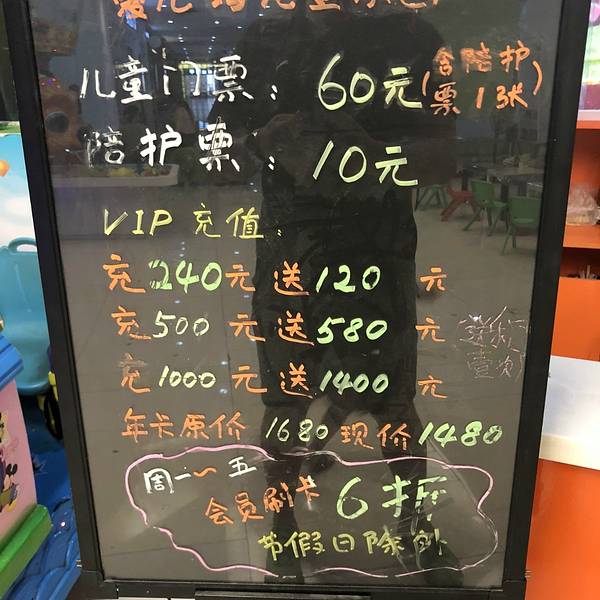 儿童门票：60元(含陪护票1张)
陪护票：10元
VIP 充值：
充240元送120元
充500元送580元
充1000元送1400元
年卡原价1680现价1480
周一~五
会员刷卡6折
节假日除外